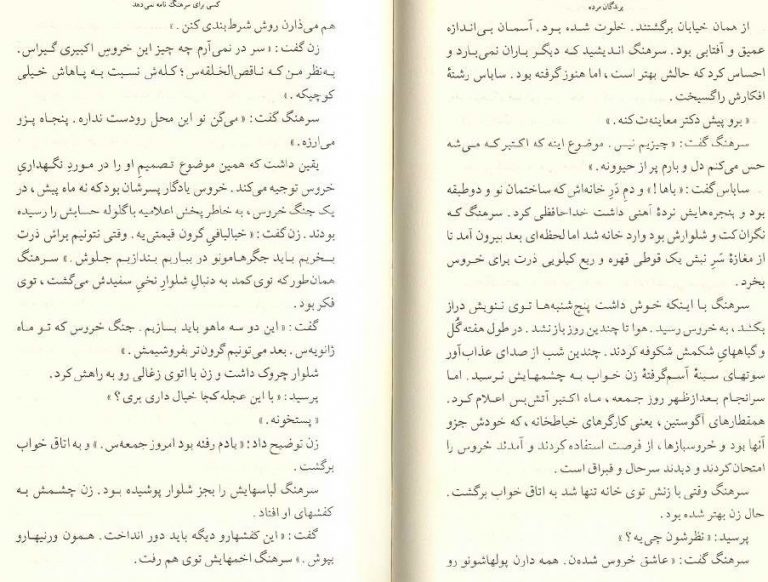 پرندگان مرده
از همان خیابان برگشتند. خلوت شده بود. آسمان بی‌اندازه
عمیق و آفتابی بود. سرهنگ اندیشید که دیگر باران نمی‌بارد و
احساس کرد که حالش بهتر است، اما هنوز گرفته بود. ساباس رشتهٔ
افکارش را گسیخت.
« برو پیش دکتر معاینه‌ت کنه. »
سرهنگ گفت: « چیزیم نیس. موضوع اینه که اکتبر که می‌شه
حس می‌کنم دل و بارم پر از حیوونه. »
ساباس گفت: « باها! » و دمِ درِ خانه‌اش که ساختمان نو و دوطبقه
بود و پنجره‌هایش نردهٔ آهنی داشت خداحافظی کرد. سرهنگ که
نگران کت و شلوارش بود وارد خانه شد اما لحظه‌ای بعد بیرون آمد تا
از مغازهٔ سَرِ نبش یک قوطی قهوه و ربع کیلویی ذرت برای خروس
بخرد.
سرهنگ با اینکه خوش داشت پنج‌شنبه‌ها توی ننویش دراز
بکشد، به خروس رسید. هوا تا چندین روز باز نشد. در طول هفته گُل
و گیاههایِ شکمش شکوفه کردند. چندین شب از صدای عذاب‌آور
سوتهای سینهٔ آسم‌گرفتهٔ زن خواب به چشمهایش نرسید. اما
سرانجام بعدازظهر روز جمعه، ماه اکتبر آتش‌بس اعلام کرد.
همقطارهای آگوستین، یعنی کارگرهای خیاطخانه، که خودش جزو
آنها بود و خروسبازها، از فرصت استفاده کردند و آمدند خروس را
امتحان کردند و دیدند سرحال و قبراق است.
سرهنگ وقتی با زنش توی خانه تنها شد به اتاق خواب برگشت.
حال زن بهتر شده بود.
پرسید: « نظرشون چی‌یه؟ »
سرهنگ گفت: « عاشق خروس شده‌ن. همه دارن پولهاشونو رو
کسی برای سرهنگ نامه نمی‌دهد
هم می‌ذارن روش شرط‌بندی کنن. »
زن گفت: « سر در نمی‌آرم چه چیز این خروسِ اکبیری گیراس.
به‌نظر من که ناقص‌الخلقه‌س؛ کله‌ش نسبت به پاهاش خیلی
کوچیکه. »
سرهنگ گفت: « می‌گن تو این محل رودست نداره. پنجاه پزو
می‌ارزه. »
یقین داشت که همین موضوع تصمیمِ او را در موردِ نگهداریِ
خروس توجیه می‌کند. خروس یادگار پسرشان بود که نه ماه پیش، در
یک جنگ خروس، به خاطر پخش اعلامیه با گلوله حسابش را رسیده
بودند. زن گفت: « خیالبافیِ گرون قیمتی‌یه. وقتی نتونیم براش ذرت
بخریم باید جگرهامونو در بیاریم بندازیم جلوش. » سرهنگ
همان‌طور که توی کمد به دنبالِ شلوار نخیِ سفیدش می‌گشت، توی
فکر بود.
گفت: « این دو سه ماهو باید بسازیم. جنگ خروس که تو ماه
ژانویه‌س. بعد می‌تونیم گرون‌تر بفروشیمش. »
شلوار چروک داشت و زن با اتوی زغالی رو به راهش کرد.
پرسید: « با این عجله کجا خیال داری بری؟ »
« پستخونه. »
زن توضیح داد: « یادم رفته بود امروز جمعه‌س. » و به اتاق خواب
برگشت.
سرهنگ لباسهایش را بجز شلوار پوشیده بود. زن چشمش به
کفشهای او افتاد.
گفت: « این کفشهارو دیگه باید دور انداخت. همون ورنیهارو
بپوش. » سرهنگ اخمهایش توی هم رفت.